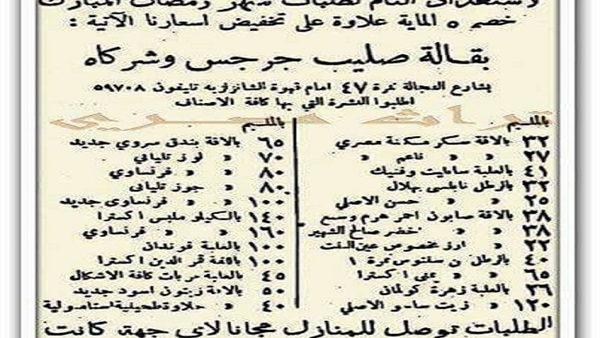 لاستعدادى التام لطلبات شهر رمضان المبارك
خصم ٥ الماية علاوة على تخفيض أسعارنا الآتية :
بقالة صليب جرجس وشركاه
بشارع الفجالة نمرة ٤٧ امام قهوة الشانزليزيه تليفون ٥٩٧٠٨
اطلبوا النشرة التي بها كافة الاصناف
تراث مصري
بالمليم
٣٢ بالاقة سكر مكنة مصري
٢٧ » » ناعم »
٤١ بالعلبة سانليت وفنيك
٣٢ بالرطل نابلسى بهلال
٢٥ » » حسن الاصلي
٣٨ بالاقة صابون احمر هرم وسبع
٣٨ » » خضر صالح الشهير
٢٢ » ارز مخصوص عين البنت
٤٠ بالرطل بن سنتوس نمرة ١
٦٥ » » يمنى اكسترا
٣٦ بالعلبة زهرة كولمان
١٢٠ » زيت ساسو الاصلي
بالمليم
٦٥ بالاقة بندق سروي جديد
٧٠ » لوز تليانى
٨٠ » » فرنساوي
٨٠ » جوز تليانى
١٠٠ » » فرنساوى جديد
١٤٠ بالكيلو ملبس اكسترا
١٦٠ » » فرنساوي
١٠٠ بالعلبة فوندان
١٠٠ باللفة قمر الدين اكسترا
٤٥ بالعلبة مربات كافة الاشكال
٥٠ بالاقة زيتون اسود جديد
٤٠ » حلاوة طحينية استامبولية
الطلبات توصل للمنازل مجانا لاى جهة كانت